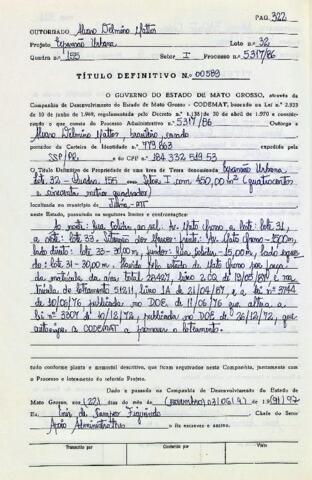 PAG. 322
OUTORGADO Alvaro Delmino Mattos
Projeto Expansão Urbana Lote n.o 32
Quadra n.o 155 Setor I Processo n.o 5317/86
TÍTULO DEFINITIVO N.o 00589
O GOVERNO DO ESTADO DE MATO GROSSO, através da
Companhia de Desenvolvimento do Estado de Mato Grosso - CODEMAT, baseado na Lei n.o 2.933
10 de junho de 1969, regulamentada pelo Decreto n.o 1.138 de 30 de abril de 1970 e consi-
o que consta do Processo Administrativo n.o 5317/86 Outorga a
Alvaro Delmino Mattos brasileiro,
portador da Carteira de Identidade n.o 449863 expedida pela
SSP/PR e do CPF n.o 184 332 519.53
O Título Definitivo de Propriedade de uma área de Terra denominada Expansão Urbana
Lote 32 - Quadra 155 Setor I com 450,00 m² (quatrocentos
e cinquenta metros quadrados)
localizada no município de Juína-MT
neste Estado, passando os seguintes limites e confrontações:
ao norte: Rua, ao sul: Av. Mato Grosso a leste: lote: 31,
a oeste: lote 33. Av. Mato Grosso - 15,00m,
lado direito: 33 - 30,00m, fundos: Rua - 15,00m, lado
do: lote 31 - 30,00m.
da matrícula da área total 28427, livro 2CQ de 19/05/84 e
de loteamento 51211, livro 1A de 21/04/87, e a lei nº 3744
de 10/06/76 publicada no DOE de 11/06/76 que altera a
lei nº 3307 de 10/12/72, publicada no DOE de 26/12/72, que
autoriza a CODEMAT a promover o loteamento.
tudo conforme planta e memorial descritivo, que ficam arquivados nesta Companhia, juntamente com
o Processo e loteamento do referido Projeto.
Dado e passado na Companhia de Desenvolvimento do Estado de
Mato Grosso, aos (22) dias do mês de (novembro)
Eu, de Campos Figueiredo Chefe do Setor
Apoio Administrativo o fiz escrever e assino.
Transcrito por Conferido por Visto